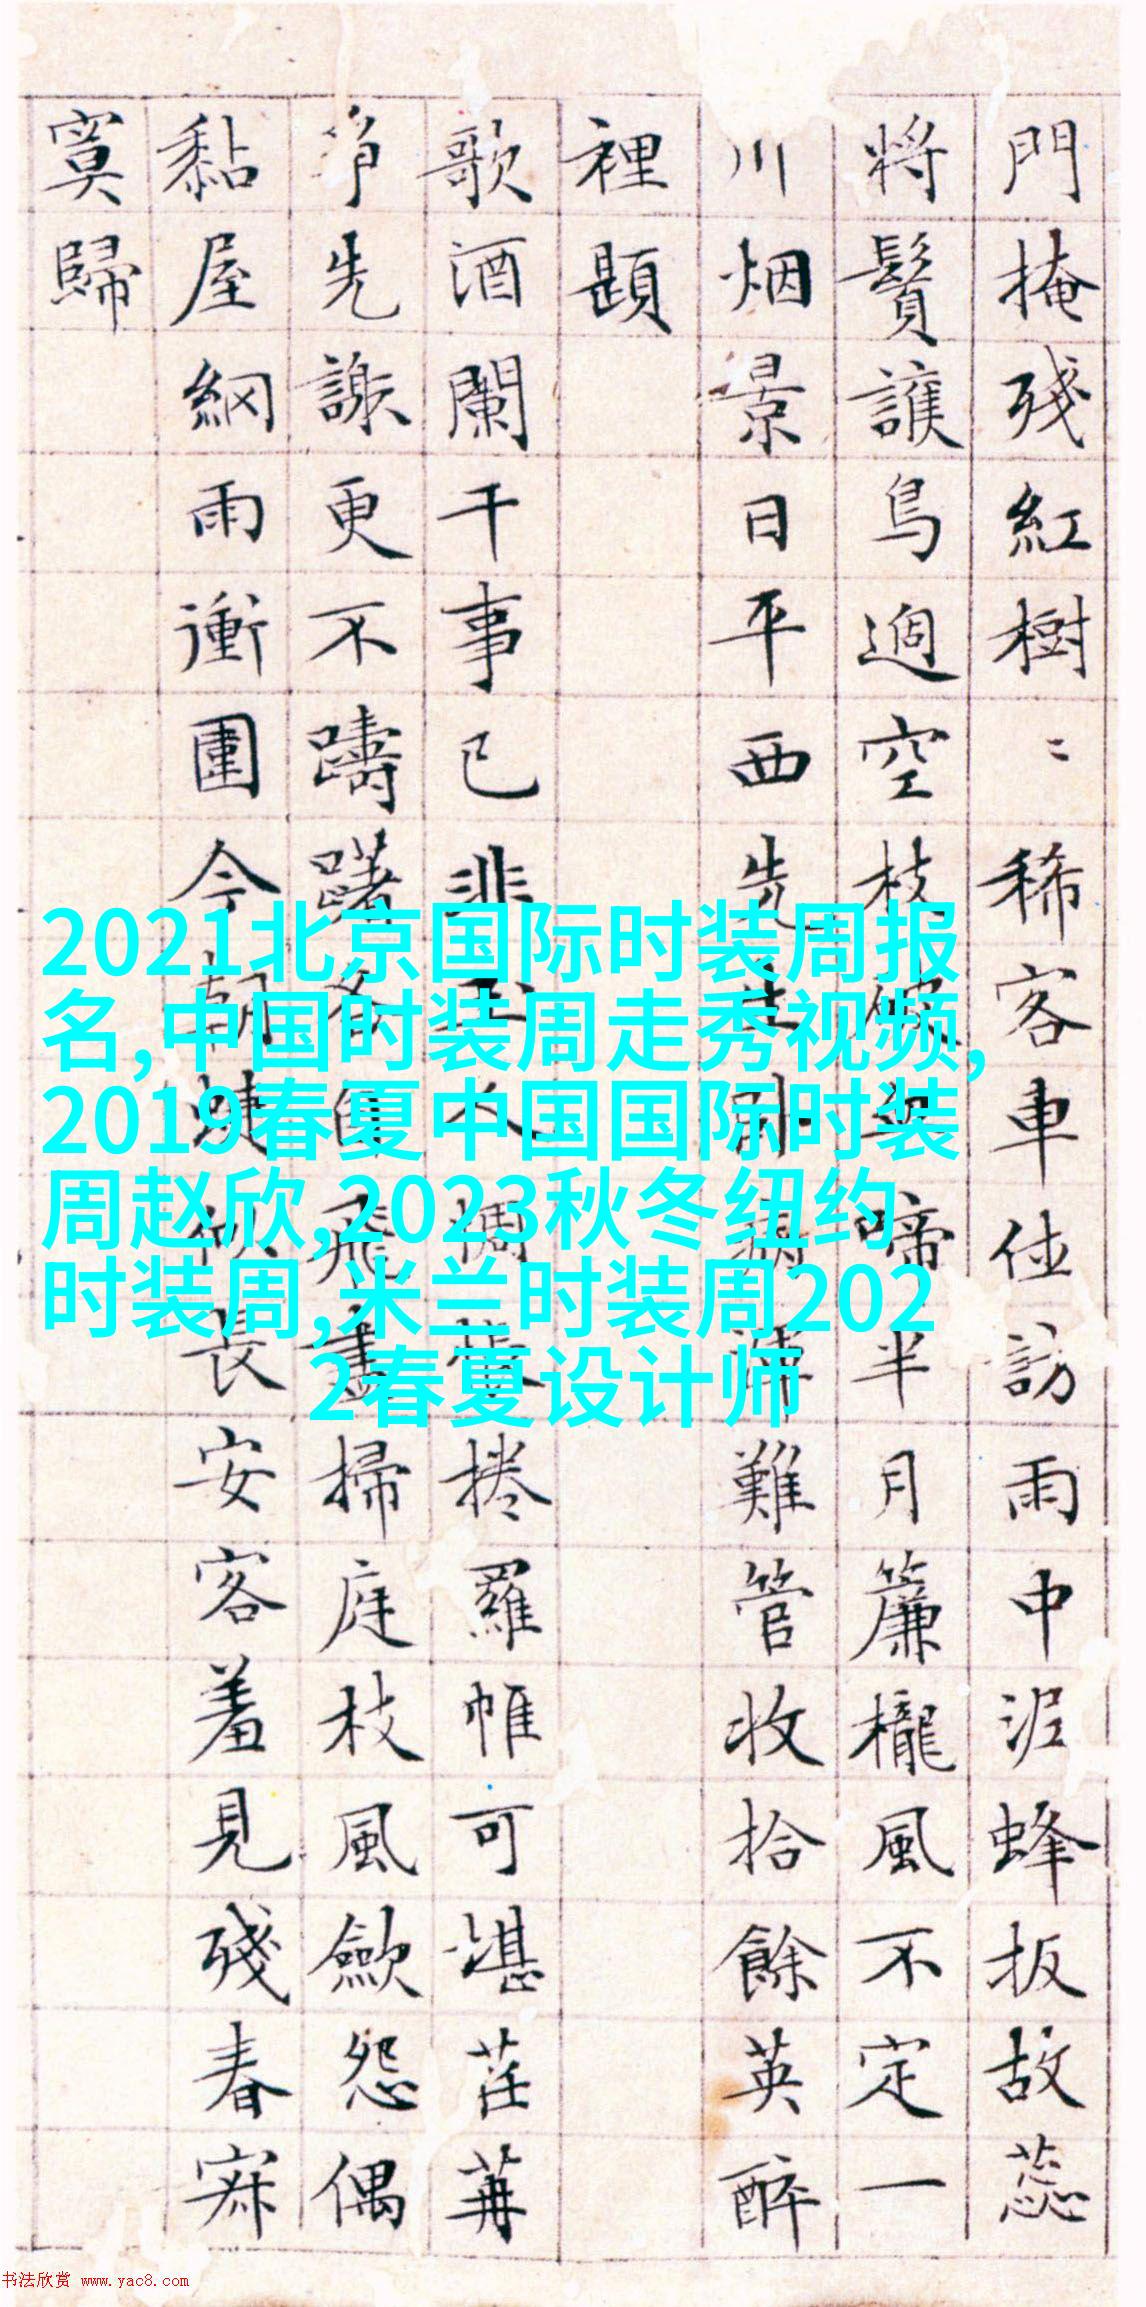 門掩殘紅樹〻稀客車住訪雨中泥蜂扳故蕊
將鬢護鳥過空枝啼半月簾櫳風不定一
川烟景日平西先生難管收拾餘英醉
裡題
歌酒闌干事已非玉人惆悵捲羅帷可堪荏苒
爭先謝更不躊躇自飛畫掃庭枝風歛怨偶
黏屋網雨衝圍今朝似長安客羞見殘春寂
寞歸
2021北京国际时装周报
名,中国时装周走秀视频,
2019春夏中国国际时装
周赵欣,2023秋冬纽约
时装周,米兰时装周202
2春夏设计师
书法欣赏 www.yac8.com